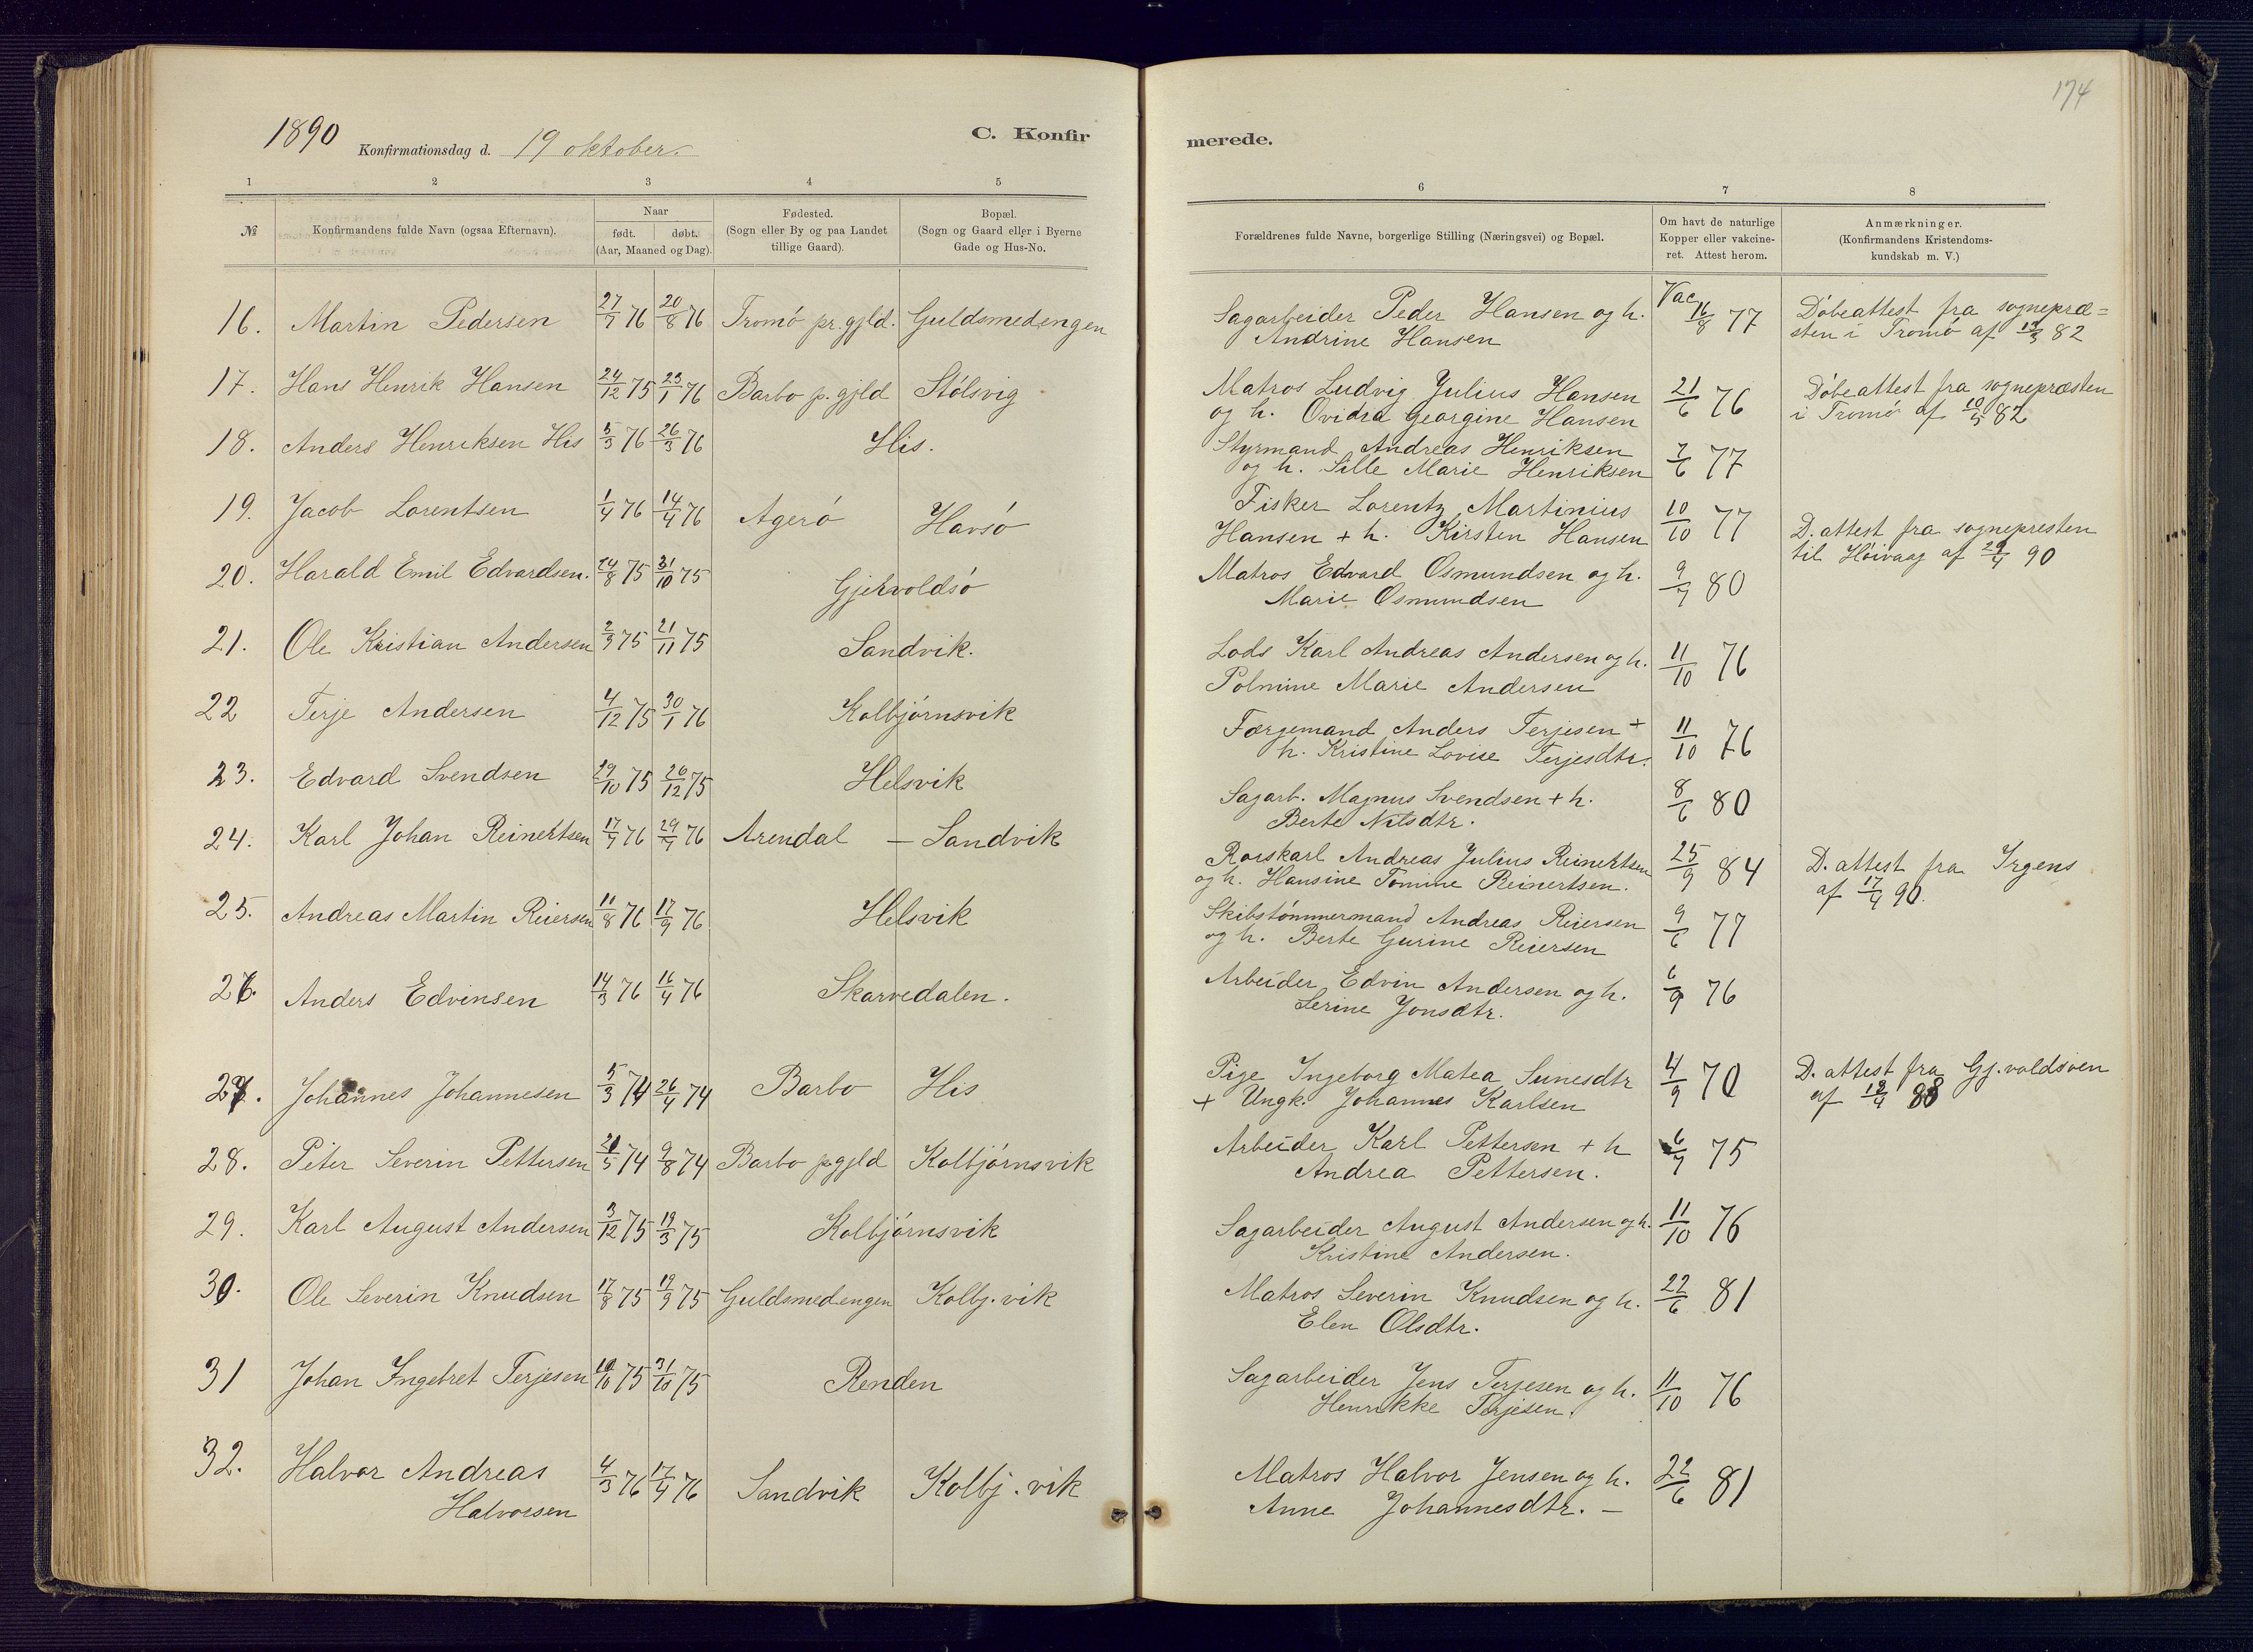 174
1890 Konfirmationsdag d. 19 oktober.
C. Konfir
merede.
1 2 3 4 5 6 7 8
№ Konfirmandens fulde Navn (ogsaa Efternavn). Naar født. døbt. (Aar, Maaned og Dag). Fødested. (Sogn eller By og paa Landet tillige Gaard). Bopæl. (Sogn og Gaard eller i Byerne Gade og Hus-No.
Forældrenes fulde Navne, borgerlige Stilling (Næringsvei) og Bopæl. Om havt de naturlige Kopper eller vakcineret. Attest herom. Anmærkninger. (Konfirmandens Kristendomskundskab m. V.)
16. Martin Pedersen 27/7 76 20/8 76 Tromö pr.gjld. Guldsmedengen Sagarbeider Peder Hansen og h. Vac 16/8 77 Döbeattest fra sognepræ=
Andrine Hansen sten i Tromö af 82
17. Hans Henrik Hansen 24/12 75 23/1 76 Barbo p.gjld Stölsvig Matros Ludvig Julius Hansen 21/6 76 Döbeattest fra sognepræsten
og h. Ovidra Georgine Hansen i Tromö af 10/5 82
18. Anders Henriksen His 5/3 76 26/3 76 His. Styrmand Andreas Henriksen 7/6 77
og h. Sille Marie Henriksen
19. Jacob Lorentsen 1/4 76 14/4 76 Agerö Havsö Fisker Lorentz Martinius 10/10 77 D. attest fra sognepresten
Hansen + h. Kirsten Hansen til Höivaag af 29/4 90
20. Harald Emil Edvardsen. 24/8 75 31/10 75 Gjervoldsö Matros Edvard Osmundsen og h. 9/7 80
Marie Osmundsen
21. Ole Kristian Andersen 2/9 75 21/11 75 Sandvik. Lods Karl Andreas Andersen og h. 11/10 76
Polmine Marie Andersen
22 Terje Andersen 4/12 75 30/1 76 Kolbjörnsvik Færgemand Anders Terjesen + 11/10 76
h. Kristine Lovise Terjesdtr.
23. Edvard Svendsen 29/10 75 26/12 75 Helsvik Sagarb. Magnus Svendsen + h. 8/6 80
Berte Nilsdtr.
24. Karl Johan Reinertsen 17/7 76 29/7 76 Arendal - Sandvik Rorskarl Andreas Julius Reinertsen 25/9 84 D. attest fra Irgens
og h. Hansine Tomine Reinertsen. af 17/4 90.
25. Andreas Martin Reiersen 11/8 76 17/9 76 Helsvik Skibstömmermand Andreas Reiersen 9/6 77
og h. Berte Gurine Reiersen
26. Anders Edvinsen 14/3 76 16/4 76 Skarvedalen. Arbeider Edvin Andersen og h. 6/9 76
Serine Jonsdtr.
27. Johannes Johannesen 5/3 74 26/4 74 Barbo His Pige Ingeborg Matea Sunesdtr 4/9 70 D. attest fra Gj.voldsöen
+ Ungk. Johannes Karlsen af 88
28. Peter Severin Pettersen 74 9/8 74 Barbo p.gjld Kolbjörnsvik Arbeider Karl Pettersen + h 6/7 75
Andrea Pettersen.
29. Karl August Andersen 3/12 75 19/3 75 Kolbjörnsvik Sagarbeider August Andersen og h. 11/10 76
Kristine Andersen.
30. Ole Severin Knudsen 17/8 75 19/9 75 Guldsmedengen Kolbj. vik Matros Severin Knudsen og h. 22/6 81
Elen Olsdtr.
31 Johan Ingebret Terjesen 75 31/10 75 Renden Sagarbeider Jens Terjesen og h. 11/10 76
Henrikke Terjesen.
32. Halvor Andreas 4/3 76 17/4 76 Sandvik Kolbj. vik Matros Halvor Jensen og h. 22/6 81
Halvorsen Anne Johannesdtr. -